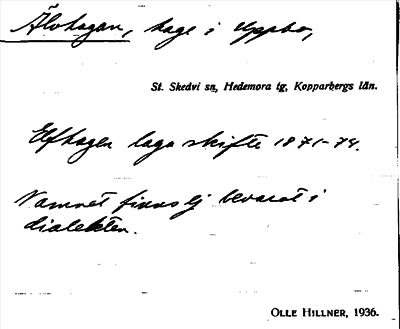 Älvhagen, hage i Uppbo,
St. Skedvi sn, Hedemora tg, Kopparbergs län.
Elfhagen laga skifte 1871-74.
Namnet finns ej bevarat i
dialekten.
OLLE HILLNER, 1936.